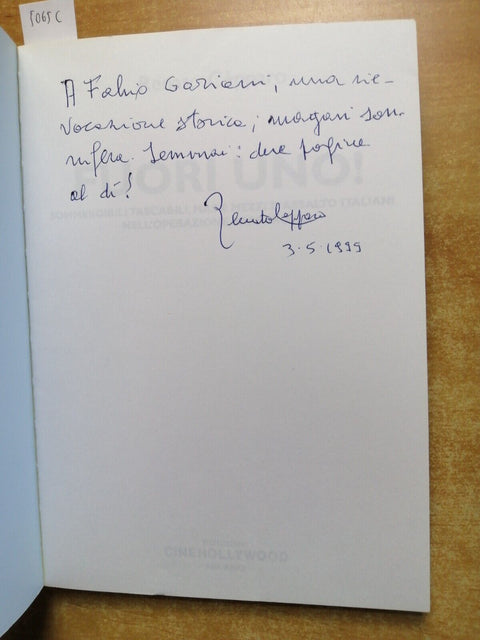 5065 C
A Fabio Gariani, una rie-
vocazione storica; magari son-
nifera. Semmai: due pagine
al dì!
3.5.1999
FUORI UNO!
SOMMERGIBILI TASCABILI, ASSALTO ITALIANI
NELL'OPERAZIONE
CINEHOLLYWOOD